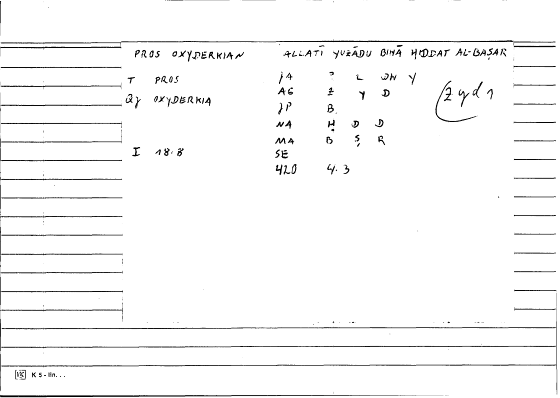 PROS OXYDERKIAN ALLATĪ YUZĀDU BIHĀ ḤIDDAT AL-BAṢAR
T PROS JA ? L DH Y
2J OXYDERKIA AG Z Y D (zyd 1
JP B
NA Ḥ D D
MA B Ṣ R
I 18.8 SE
420 4.3
K S-lin...